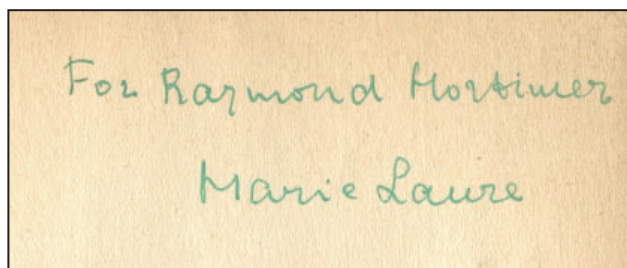 For Raymond Mortimer
Marie Laure